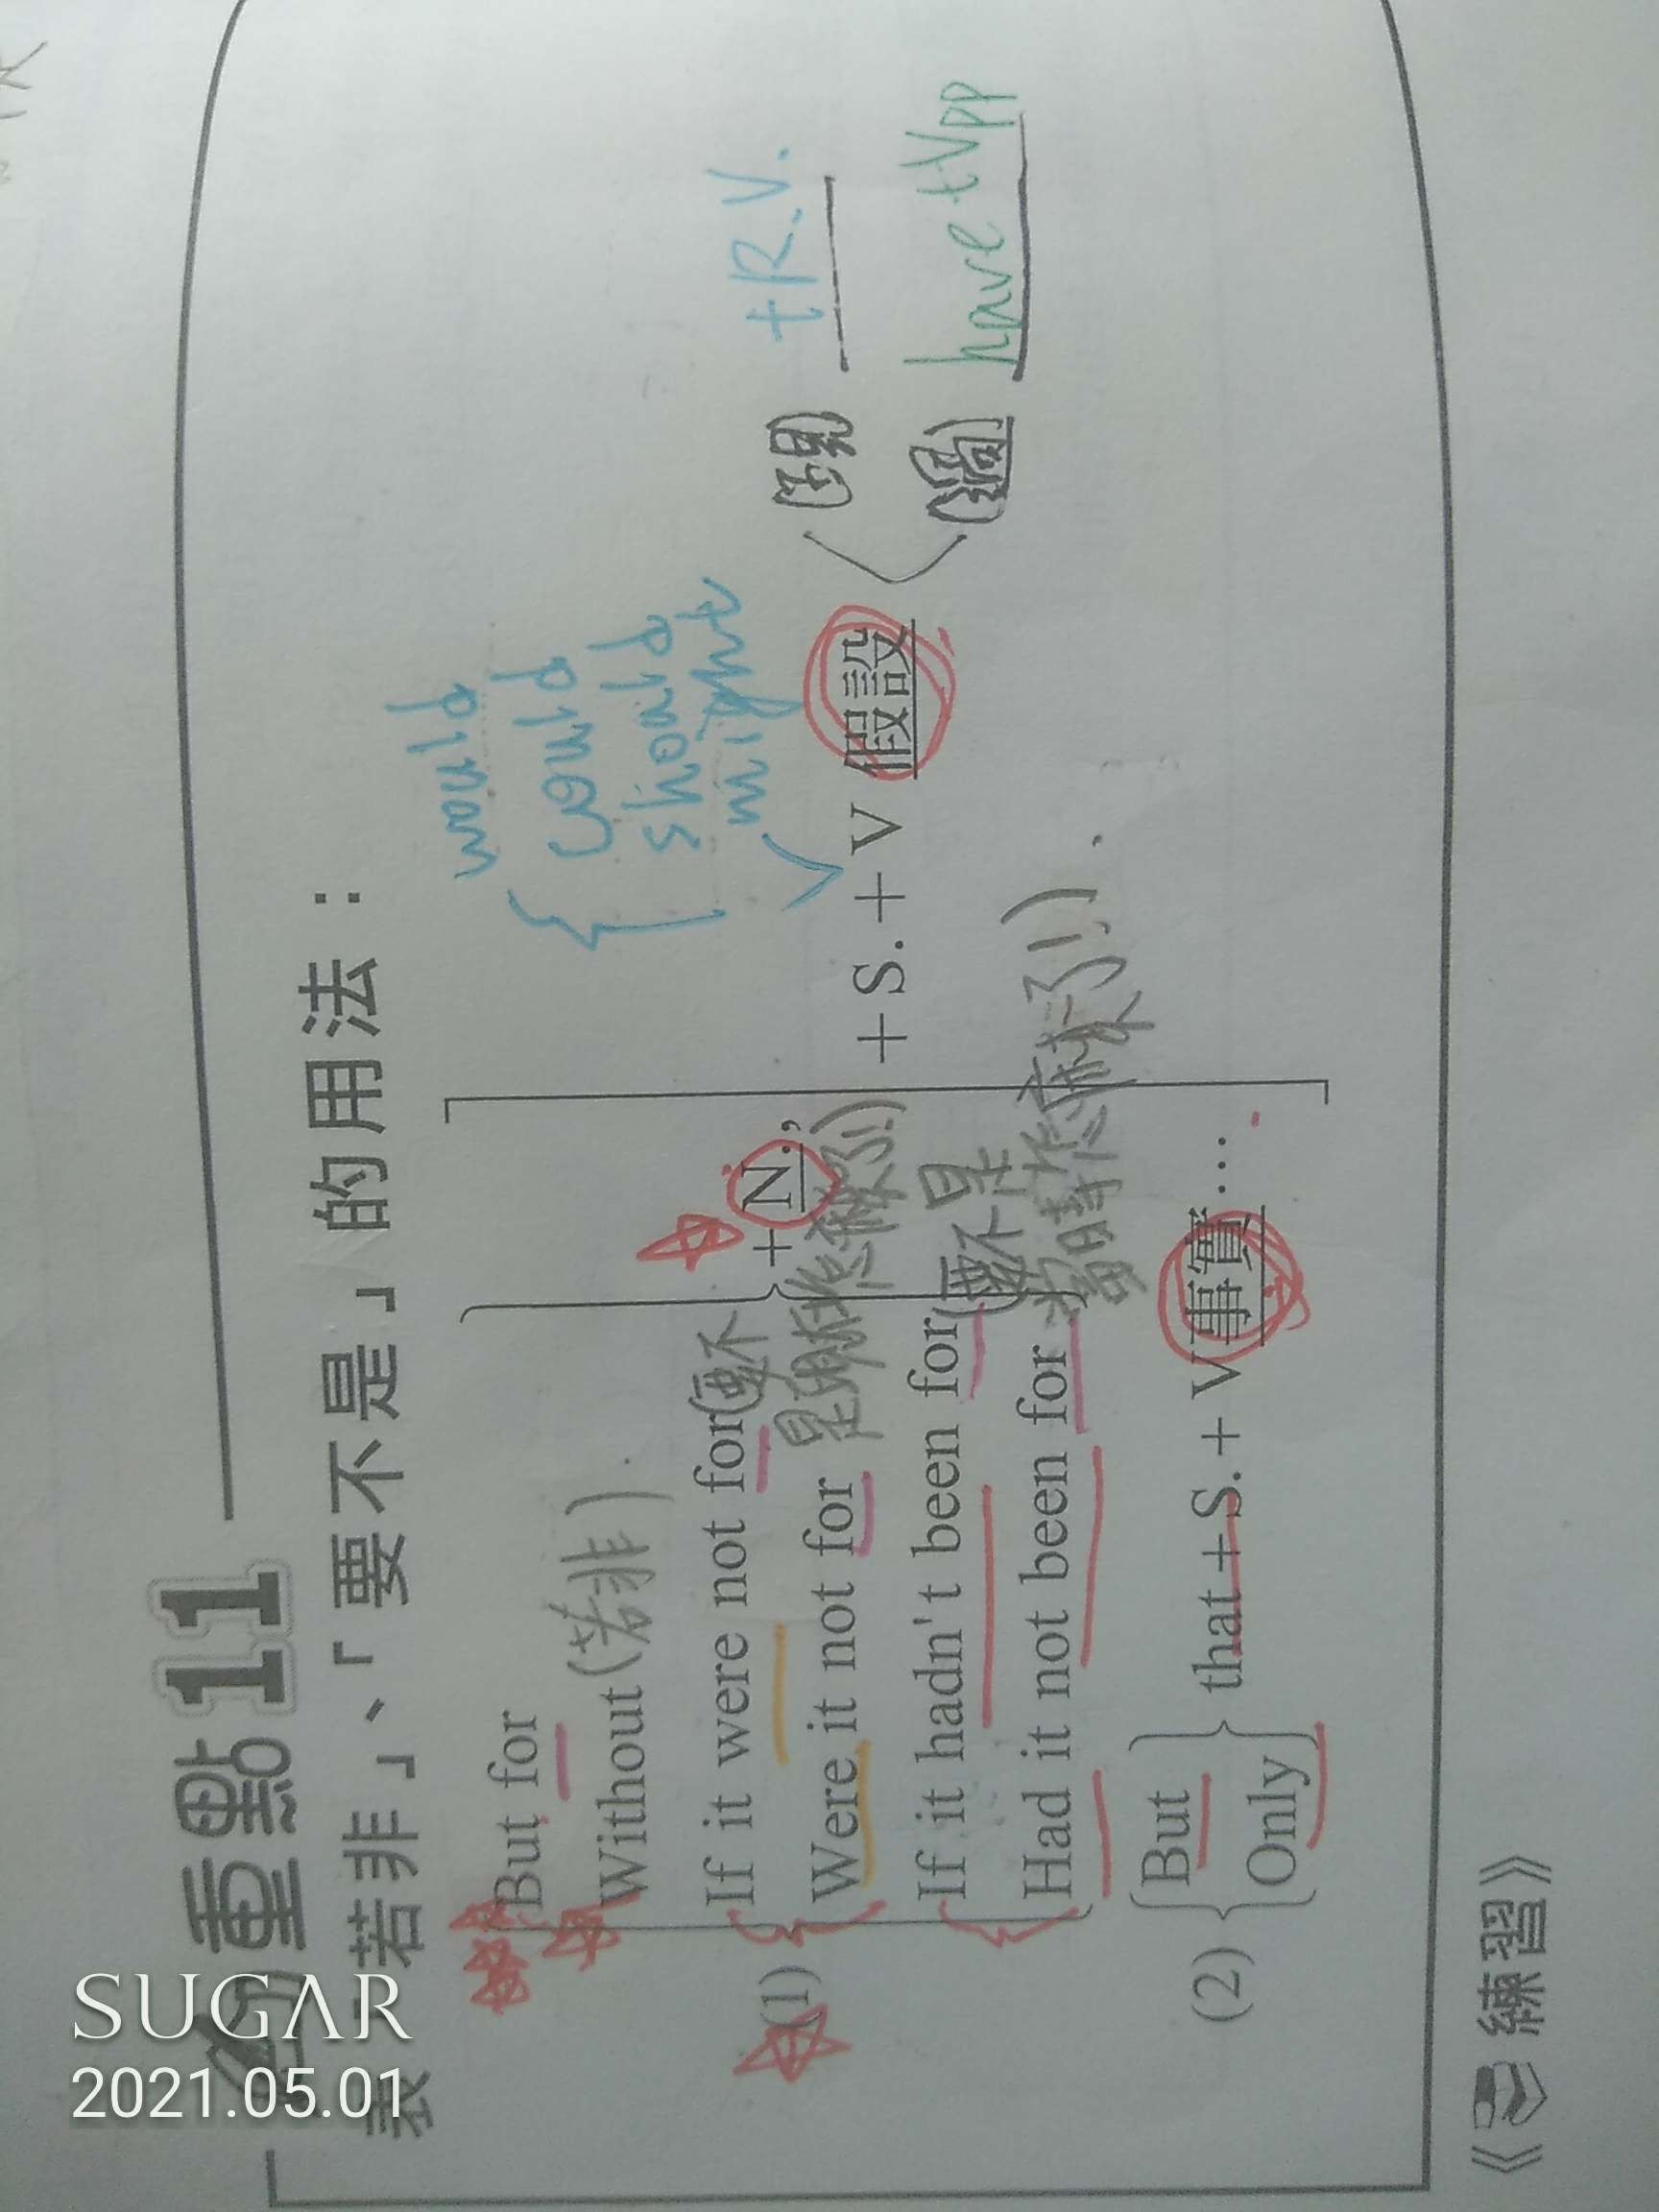 重點11
表「若非」、「要不是」的用法：
would
could
should
might
But for
Without (若非).
(1)
If it were not for (要不
是現在你療
Were it not for
If it hadn't been for (要不是
Had it not been for 當時你療
+ N.,
+ S. + V 假設
(現) + R.V.
(過) have + Vpp
(2) But
Only
that + S. + V 事實…
《練習》
SUGAR
2021.05.01